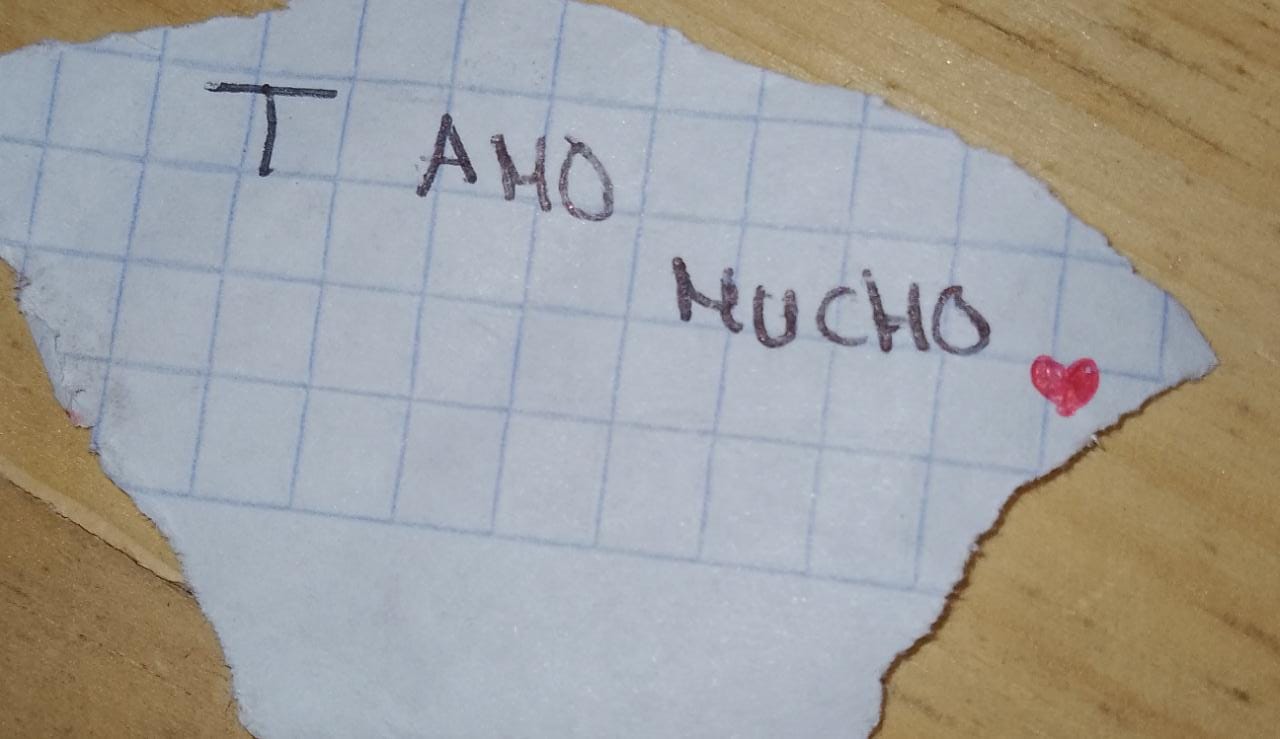 T AMO
MUCHO